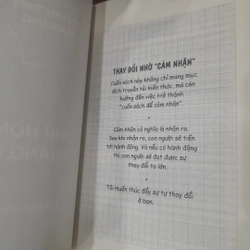 THAY ĐỔI NHỜ "CẢM NHẬN"
Cuốn sách này không chỉ mang mục
đích truyền tải kiến thức, mà còn
hướng đến việc trở thành
"cuốn sách để cảm nhận".
*
Cảm nhận có nghĩa là nhận ra.
Sau khi nhận ra, con người sẽ tiến
tới hành động. Và nếu có hành động
thì con người sẽ đạt được sự
thay đổi to lớn.
*
Tôi muốn thúc đẩy sự tự thay đổi
ở bạn.